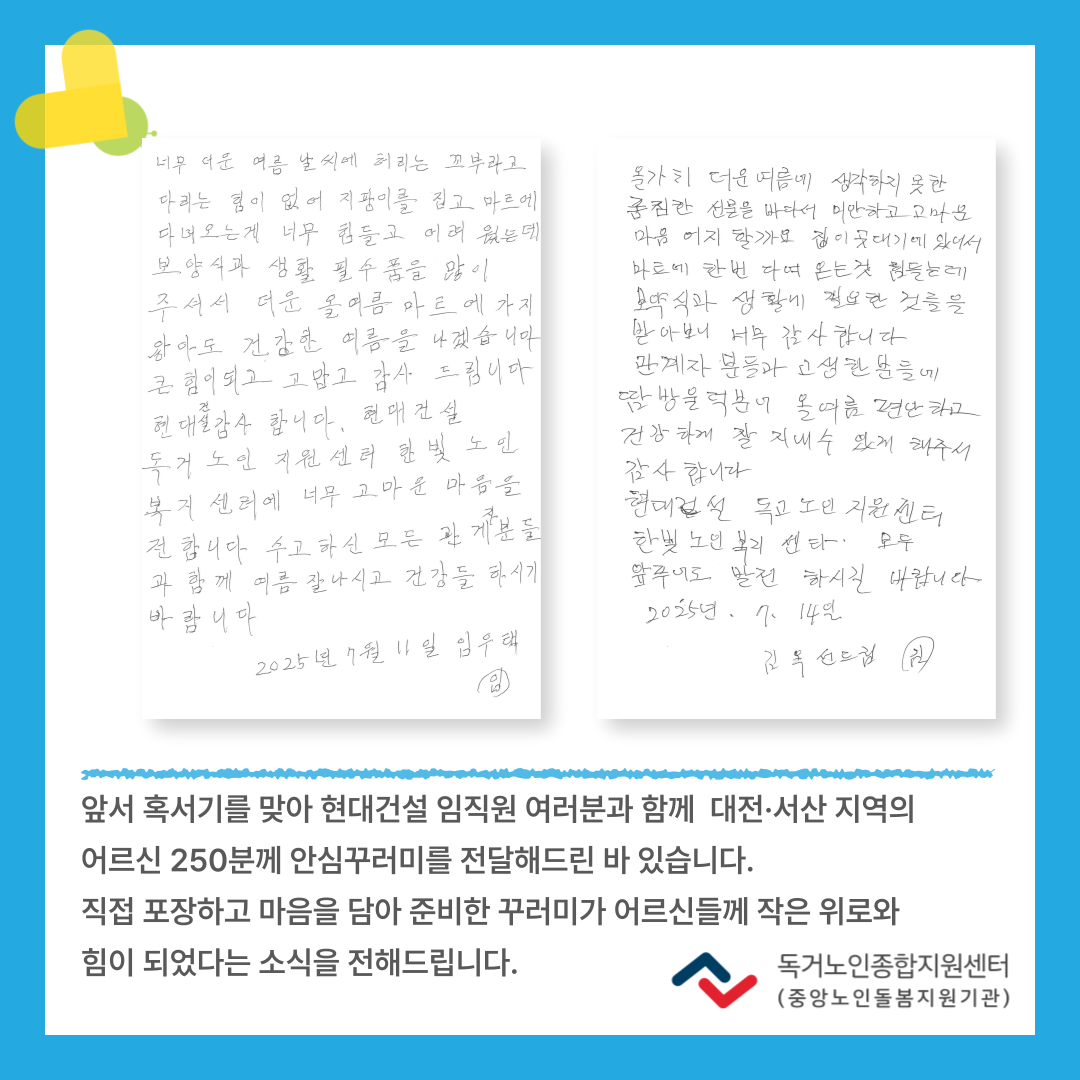 너무 더운 여름 날씨에 허리는 꼬부라고
다리는 힘이 없어 지팡이를 집고 마르에
다녀오는게 너무 힘들고 어려 웠는데
보양식과 생활 필수품을 많이
주셔서 더운 올여름 마트에 가지
않아도 건강한 여름을 나겠습니다
큰힘이되고 고맙고 감사 드립니다
현대건설감사 합니다. 현대건설
독거 노인 지원센터 한빛 노인
복지 센터에 너무 고마운 마음을
전합니다 수고하신 모든 관계자분들
과 함께 여름 잘나시고 건강들 하시기
바랍니다
2025년 7월 11일 임우택
임
올가치 더운여름에 생각하지 못한
선물을 바다서 미안하고 고마운
마음 어지 할까요 집이 곳대기에 있어서
마트에 한번 다여 온는것 힘들는데
보약식과 생활에 필요한 것들을
받아보니 너무 감사합니다
관계자 분들과 고생한분들에
땀방울덕분에 올여름 편안하고
건강하게 잘 지내수 있게 해주서
감사 합니다
현대건설 독고노인지원센터
한빛노인복지 센타. 모두
앞루에도 발전 하시길 바랍니다
2025년. 7. 14일
김옥선드림 김
앞서 혹서기를 맞아 현대건설 임직원 여러분과 함께 대전·서산 지역의
어르신 250분께 안심꾸러미를 전달해드린 바 있습니다.
직접 포장하고 마음을 담아 준비한 꾸러미가 어르신들께 작은 위로와
힘이 되었다는 소식을 전해드립니다.
독거노인종합지원센터
(중앙노인돌봄지원기관)